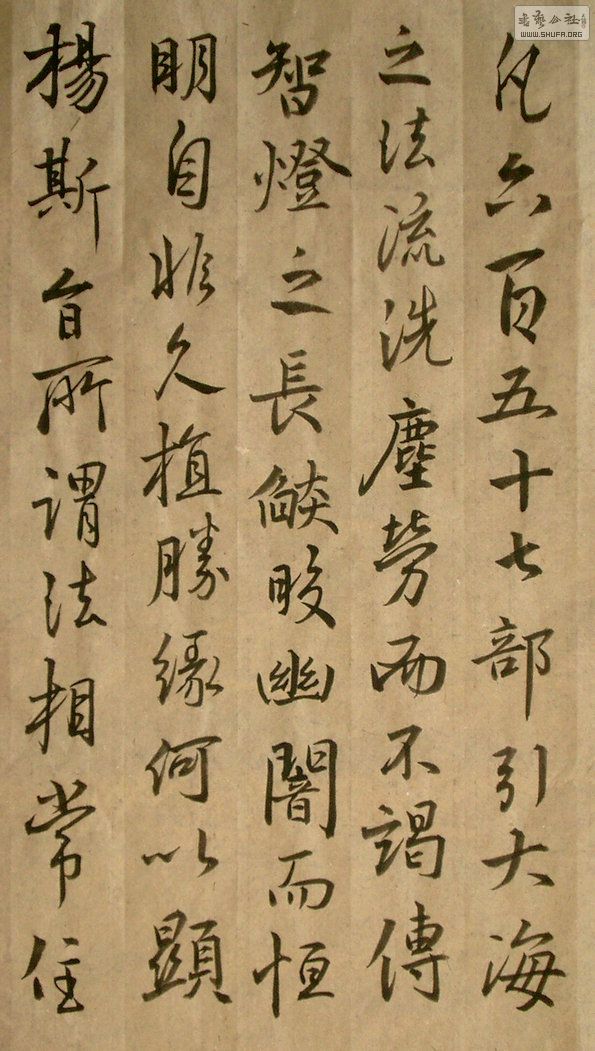 凡六百五十七部引大海
之法流洗塵勞而不竭傳
智燈之長焰皎幽闇而恒
明自非久植勝緣何以顯
楊斯旨所謂法相常住
書藝公社
WWW.SHUFA.ORG